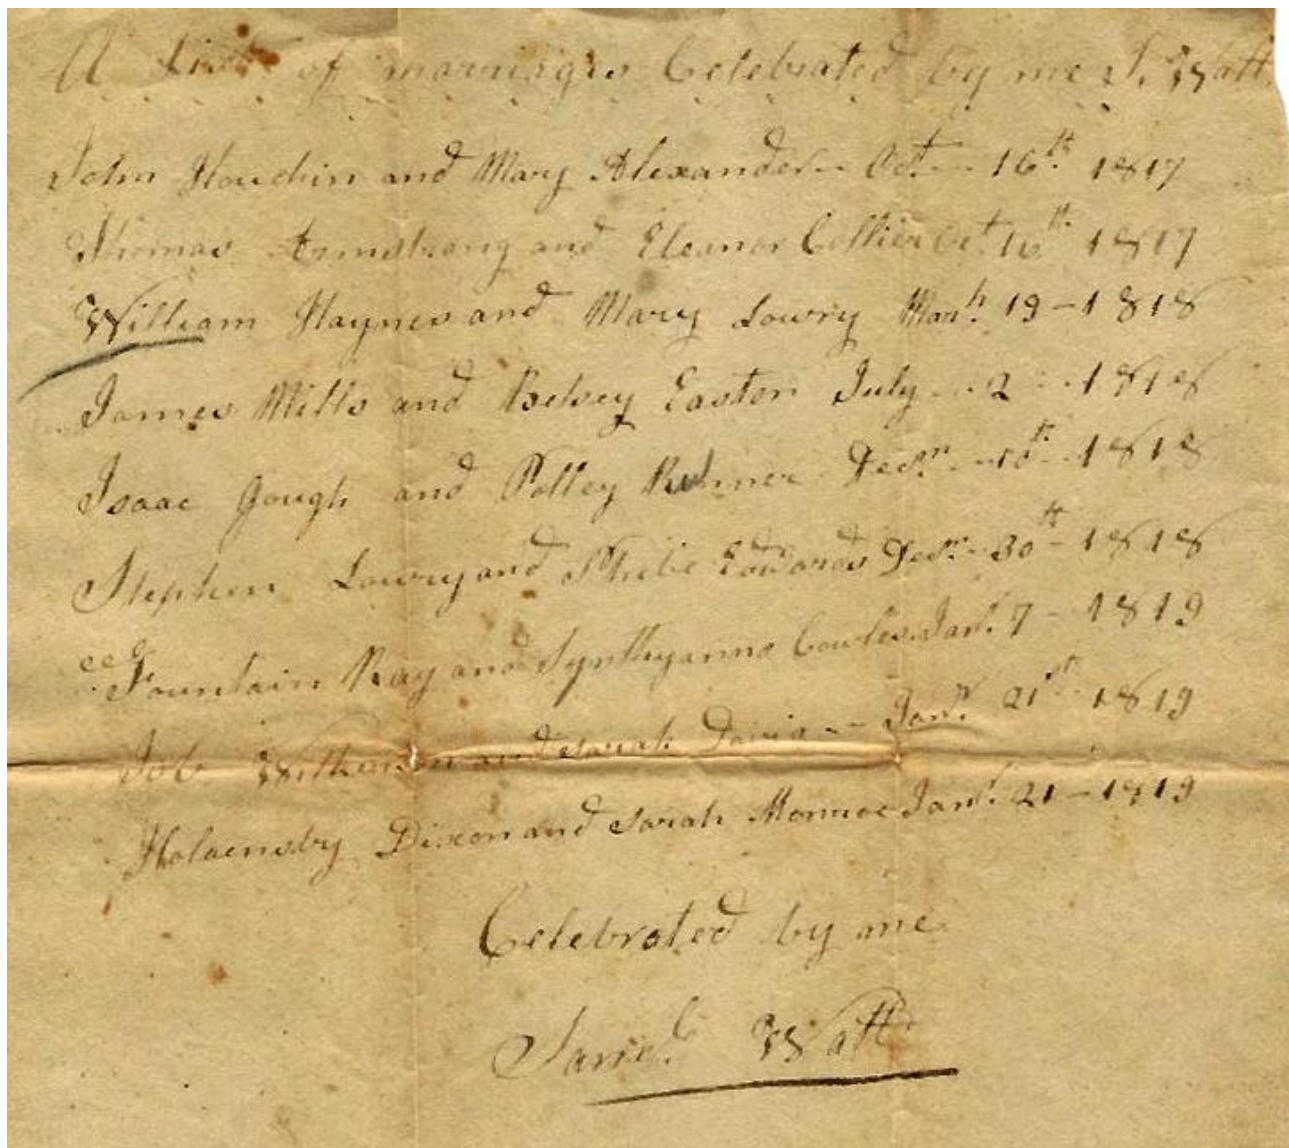 A list of marriages Celebrated by me S. Watt
John Houchin and Mary Alexander - Oct - 16th 1817
Thomas Armstrong and Eleanor Collier Oct 16th 1817
William Haynes and Mary Lowry Marh. 19 - 1818
James Mills and Betsey Easton July - 2 - 1818
Isaac Gough and Polley Runner Decmr - 10th - 1818
Stephen Lowry and Phebe Edwards Decmr - 30th - 1818
Fountain Ray and Synthyanna Cowles Jany. 7 - 1819
Job Wilkerson and Sarah Davis -- Jany. 21st - 1819
Dixon and Sarah Monroe Jany. 21 - 1819
Celebrated by me
Saml. Watt